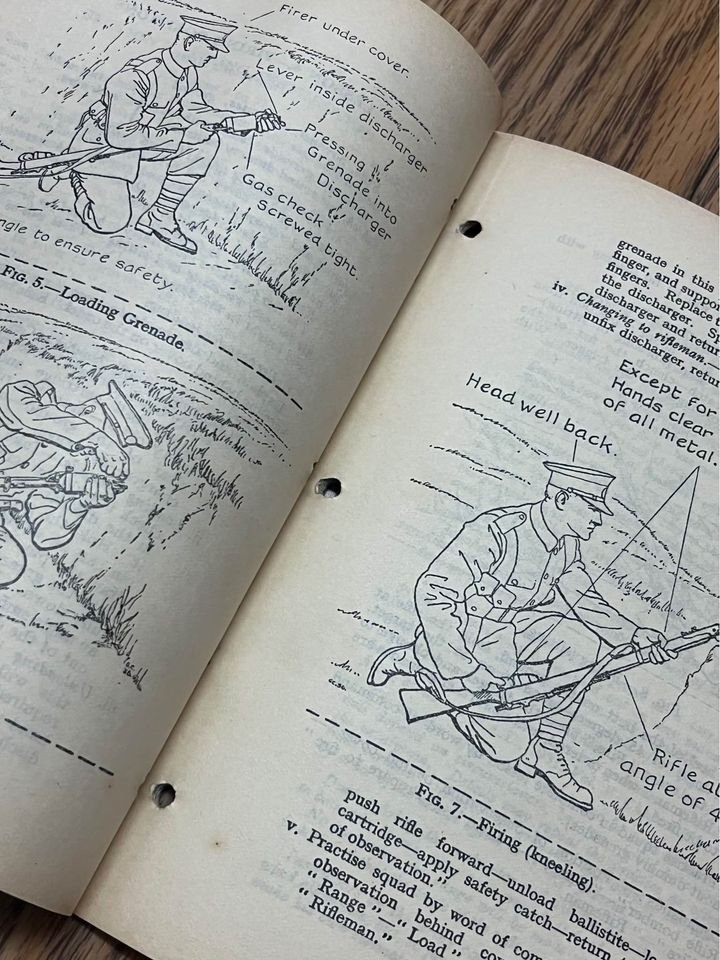 Firer under cover.
Lever inside discharger
Pressing
Grenade into
Discharger
Gas check
screwed tight.
angle to ensure safety.
FIG. 5.—Loading Grenade.
grenade in this
finger, and suppo
fingers. Replace
the discharger. Sp
discharger and retur
iv. Changing to rifleman.—
unfix discharger, retur
Except for
Hands clear
of all metal.
Head well back.
Rifle at
angle of 4
FIG. 7.—Firing (kneeling).
push rifle forward—unload ballistite—lo
cartridge—apply safety catch—return
of observation."
v. Practise squad by word of com
observation behind cov
"Range"—"Load"
"Rifleman."